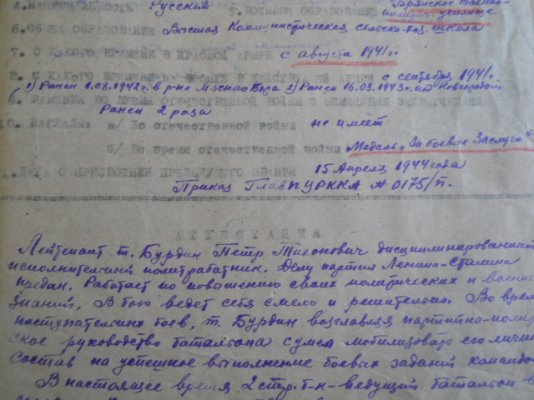 4. Русский 5. ВОЕННОЕ ОБРАЗОВАНИЕ Брянское Военно-
политич. училище
6. ОБЩЕЕ ОБРАЗОВАНИЕ Высшая Коммунистическая сельско-хоз. школа
7. С КАКОГО ВРЕМЕНИ В КРАСНОЙ АРМИИ с августа 1941 г.
8. С КАКОГО ВРЕМЕНИ с сентября 1941 г.
1) Ранен 1.08.1942 г. в р-не Мясного Бора 2) Ранен 16.03.1943 г. под Новгородом
9. РАНЕНИЯ ВО ВРЕМЯ ОТЕЧЕСТВЕННОЙ ВОЙНЫ С НЕМЕЦКИМИ ЗАХВАТЧИКАМИ
Ранен 2 раза
10. НАГРАДЫ: а/ До отечественной войны не имеет
б/ Во время отечественной войны Медаль "За боевые Заслуги"
1. ДАТА О ПРИСВОЕНИИ ПРЕДЫДУЩЕГО ЗВАНИЯ 15 Апреля 1944 года
Приказ ГлавПУРККА № 0175/п.
АТТЕСТАЦИЯ
Лейтенант т. Бурдин Петр Тихонович дисциплинированный
исполнительный политработник. Делу партии Ленина-Сталина
предан. Работает по повышению своих политических и военн
знаний. В бою ведет себя смело и решительно. Во время
наступательных боев, т. Бурдин возглавляя партийно-полит
ское руководство батальона сумел мобилизовать его личн
состав на успешное выполнение боевых заданий командо
В настоящее время 2 стр. б-н - ведущий батальон в